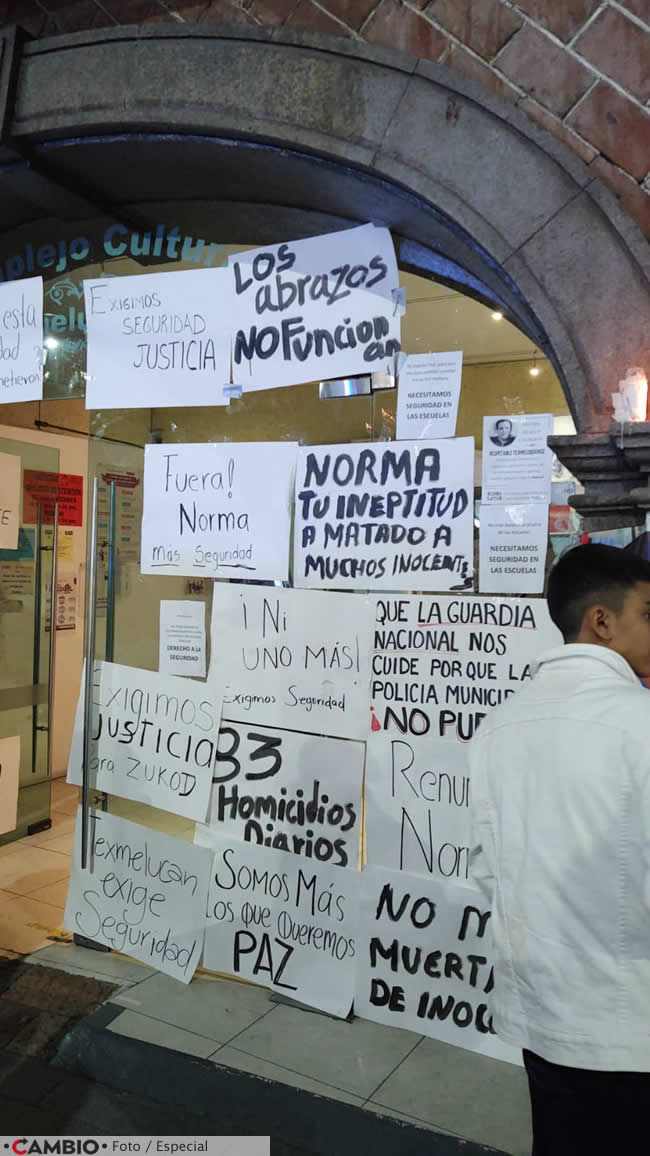 Complejo Cultur
esta
dad
metieron
Exigimos
SEGURIDAD
JUSTICIA
LOS
abrazos
NO Funcion
an
NECESITAMOS
SEGURIDAD EN
LAS ESCUELAS
Fuera!
Norma
Más Seguridad
NORMA
TU INEPTITUD
A MATADO A
MUCHOS INOCENTES
NECESITAMOS
SEGURIDAD EN
LAS ESCUELAS
DERECHO A LA
SEGURIDAD
¡Ni
UNO MÁS!
Exigimos Seguridad
QUE LA GUARDIA
NACIONAL NOS
CUIDE PORQUE LA
POLICIA MUNICIP
¡NO PU
Exigimos
JUSTICIA
Para ZUKOD
83
Homicidios
Diarios
Renun
Nor
Texmelucan
exige
Seguridad
SOMOS MÁS
LOS QUE QUEREMOS
PAZ
NO M
MUERT
DE INOC
CAMBIO Foto / Especial